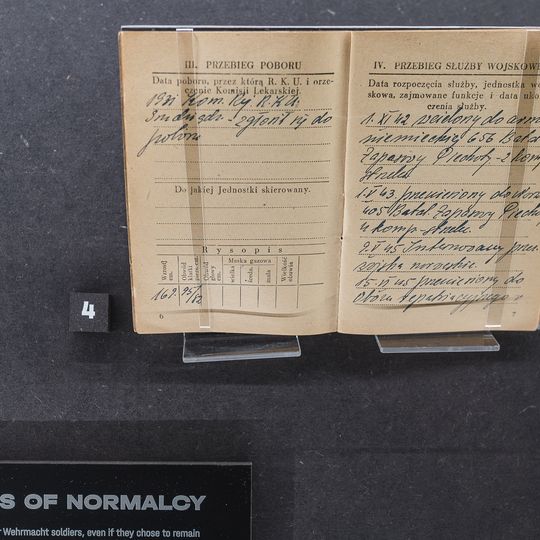 III. PRZEBIEG POBORU
Data poboru, przez którą R. K. U. i orze-
czenie Komisji Lekarskiej.
1931 Kom. R. K. U.
zgłosił się do
Do jakiej Jednostki skierowany.
Rysopis
Wzrost cm.
Obwód klatki
Obwód głowy cm.
Maska gazowa
wielka
średn.
mała
Wielkość obuwia
169. 95/82
6
IV. PRZEBIEG SŁUŻBY WOJSKOWE
Data rozpoczęcia służby, jednostka wo
skowa, zajmowane funkcje i data uko
czenia służby.
1. XI 42 wcielony do arm
niemieckiej 656 Batal
Zapasowy Piechoty - 2 komp
strzelec
1. V 43 przeniesiony do
405 Batal. Zapasowy Piech
4 komp. strzelec.
9. V 45 Internowany prze
wojska norweskie
15. VI 45 przeniesiony do
Obozu repatriacyjnego
7
4
S OF NORMALCY
Wehrmacht soldiers, even if they chose to remain